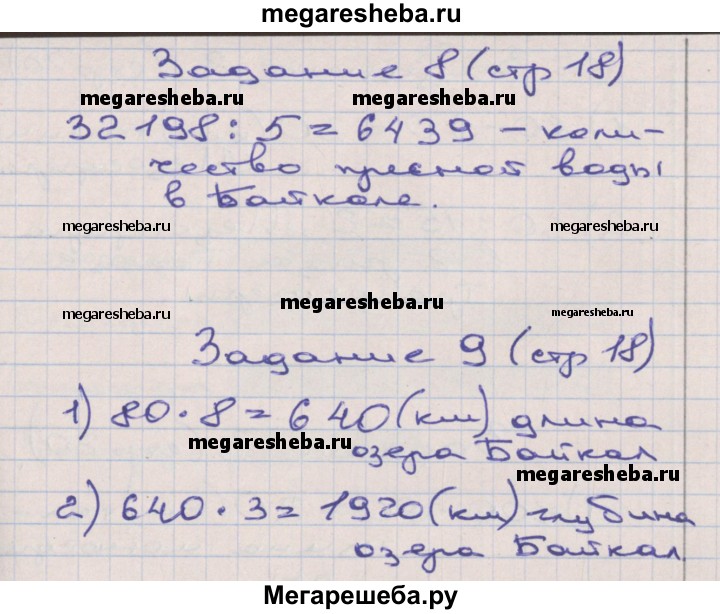 megaresheba.ru
Задание 8 (стр 18)
megaresheba.ru megaresheba.ru
32198 : 5 = 6439 – коли-
чество пресной воды
в Байкале.
megaresheba.ru megaresheba.ru
megaresheba.ru megaresheba.ru megaresheba.ru
Задание 9 (стр 18)
1) 80 · 8 = 640 (км) длина
megaresheba.ru
озера Байкал
megaresheba.ru
2) 640 · 3 = 1920 (км) глубина
озера Байкал
Мегарешеба.ру